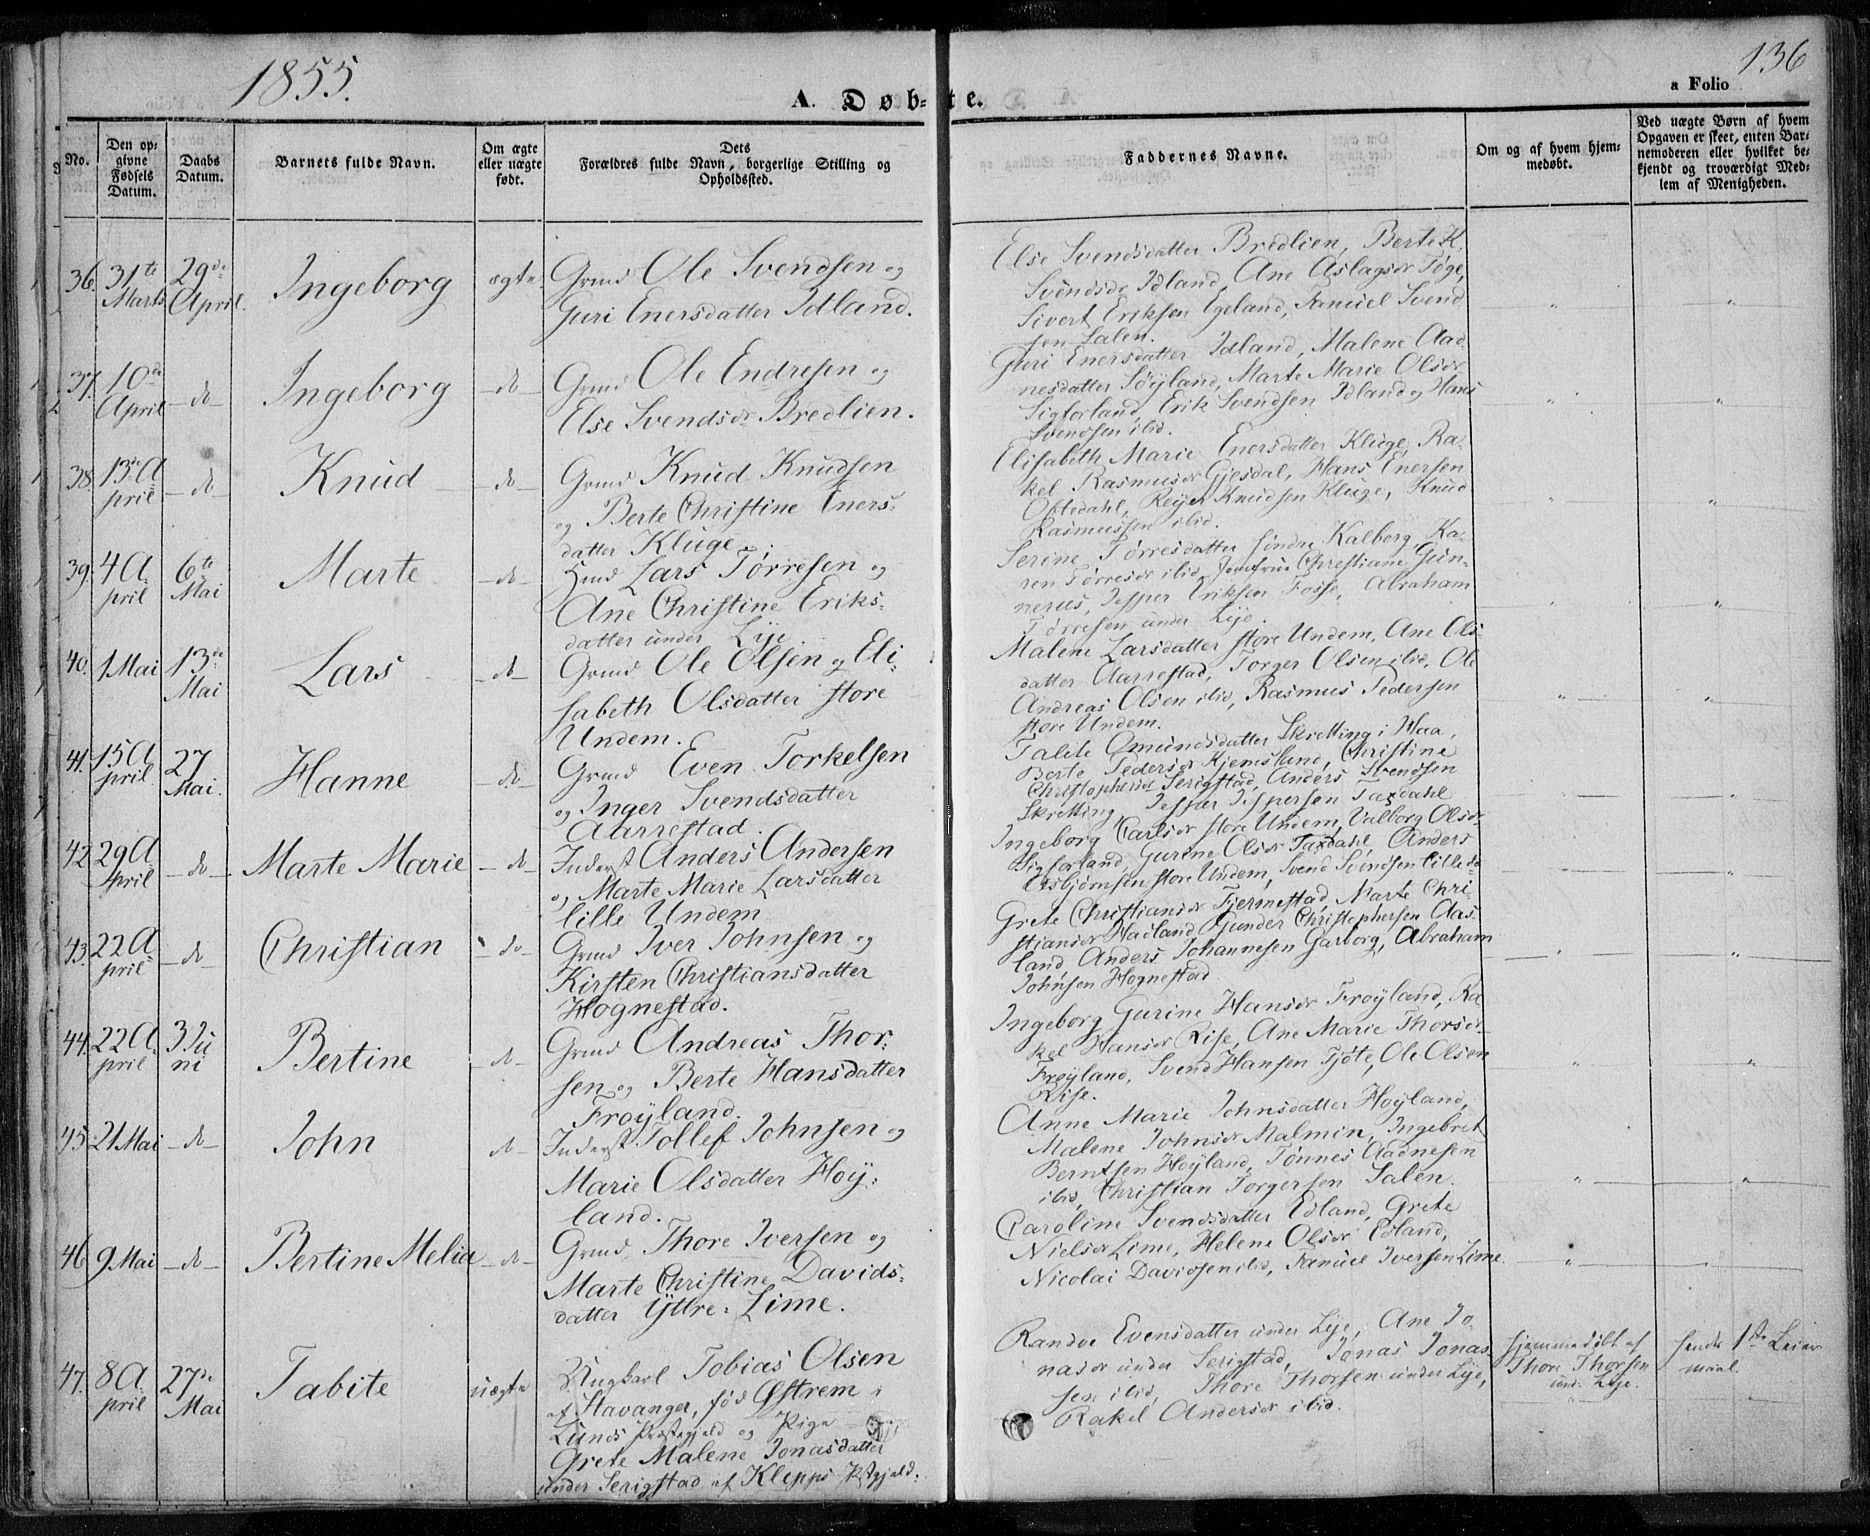 1855.
136
A. Døbte.
a Folio
No.
Den opgivne Fødsels Datum.
Daabs Datum.
Barnets fulde Navn.
Om ægte eller uægte født.
Dets Forældres fulde Navn, borgerlige Stilling og Opholdssted.
Faddernes Navne.
Om og af hvem hjemmedøbt.
Ved uægte Børn af hvem Opgaven er skeet, enten Barnemoderen eller hvilket bekjendt og troværdigt Medlem af Menigheden.
36. 31te Marts 29de April. Ingeborg ægte
Grmd Ole Svendsen og
Guri Enersdatter Idland.
Else Svendsdatter Bredlien, Berte K.
Svendsdr Idland, Ane Aslagsdr Tøge,
Sivert Eriksen Egeland, Samuel Svend
sen Salen.
37. 10de April do Ingeborg do
Grmd Ole Endresen og
Else Svendsdr Bredlien.
Guri Enersdatter Idland, Malene Aad
nesdatter Søyland, Marte Marie Olsdr
Sigforland, Erik Svendsen Idland og Hans
Svendsen ibid.
38. 13de April do Knud do
Grmd Knud Knudsen
og Berte Christine Eners-
datter Kluge.
Elisabeth Marie Enersdatter Kluge, Ra-
kel Rasmusdr Gjesdal, Hans Enersen
Oftedahl, Reyer Knudsen Kluge, Knud
Rasmussen ibid.
39. 4 April 6te Mai Marte do
Hmd Lars Tørresen og
Ane Christine Eriks-
datter under Lye.
Serine Tørresdatter søndre Kalborg, Ka-
ren Tørresdr ibid, Jomfrue Christiane Gun-
nerus, Jesper Eriksen Fosse, Abraham
Tørresen under Lye.
40. 1 Mai 13de Mai Lars do
Grmd Ole Olsen og Eli-
sabeth Olsdatter store
Undem.
Malene Larsdatter store Undem, Ane Ols-
datter Aarrestad, Torger Olsen ibid, Ole
Andreas Olsen ibid, Rasmus Pedersen
store Undem.
41. 15 April 27 Mai. Hanne do
Grmd Even Torkelsen
og Inger Svendsdatter
Aarrestad.
Talete Omundsdatter Skretting i Haa,
Berte Pedersdr Kjemsland, Christine
Christophersdr Serigstad, Anders Svendsen
Skretting, Jesper Jespersen Taxdahl
42. 29 April do Marte Marie do
Inderst Anders Andersen
og Marte Marie Larsdatter
lille Undem
Ingeborg Carlsdr store Undem, Valborg Olsdr
Sigforland, Gurine Olsdr Taxdahl, Anders
Asbjørnsen store Undem, Svend Svendsen lille do
43. 22 April do Christian do
Grmd Iver Johnsen og
Kirsten Christiansdatter
Hognestad.
Grete Christiansdr Tjermestad, Marte Chri-
stiansdr Hadland, Gunder Christophersen Aas-
land, Anders Johannesen Garborg, Abraham
Johnsen Hognestad
44. 22 April 3 Juni Bertine do
Grmd Andreas Thor-
sen og Berte Hansdatter
Frøyland.
Ingeborg Gurine Hansdr Frøyland, Ra
kel Hansdr Rise, Ane Marie Thorsdr
Frøyland, Svend Hansen Tjøte, Ole Olsen
Rise.
45. 21 Mai do John do
Inderst Tollef Johnsen og
Marie Olsdatter Høy-
land.
Anne Marie Johnsdatter Høyland,
Malene Johnsdr Malmin, Ingebret
Berntsen Høyland, Tønnes Aadnesen
ibid, Christian Torgersen Salen.
46 9 Mai do Bertine Melia do
Grmd Thore Iversen og
Marte Christine Davids-
datter Yttre-Lime.
Caroline Svendsdatter Edland, Grete
Nielsdr Lime, Helene Olsdr Edland,
Nicolai Davidsen ibid, Samuel Iversen Lime.
47. 8 April 27de Mai Tabite uægte
Ungkarl Tobias Olsen
af Stavanger, fød Østrem i
Lunds Præstegjeld og Pige
Grete Malene Jonasdatter
under Serigstad af Klepps Pstgjeld.
Randve Evensdatter under Lye, Ane Jo-
nasdr under Serigstad, Jonas Jonas
sen ibid, Thore Thorsen under Lye,
Rakel Andersdr ibid.
hjemmedøbt af
Thore Thorsen
und. Lye.
hendes 1ste Leier
maal